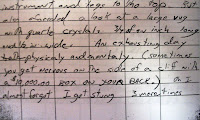 instrument and legs to the top. But
also a look at a large vug
with quartz crystals. inch long
wide. An exhausting day
both physically and mentally. (sometimes
you get nervous on the side of a cliff with
a $10,000.00 BOX ON YOUR BACK.) Oh I
almost forgot I got stung 3 more times